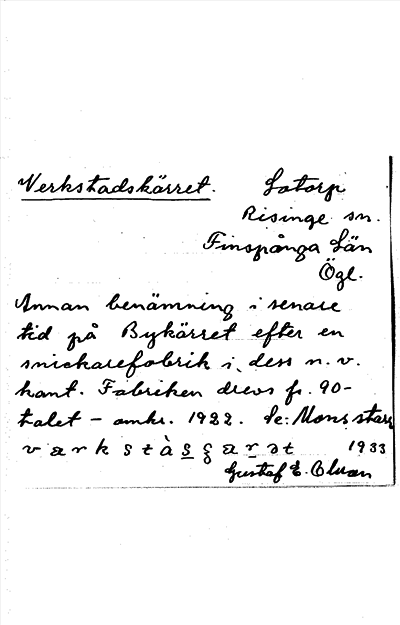 Verkstadskärret.
Lotorp
Risinge sn.
Finspånga Län
Ögl.
Annan benämning i senare
tid på Bykärret efter en
snickarefabrik i dess n. v.
kant. Fabriken drevs fr. 90-
talet – omkr. 1922. Se: Mons starr
1933
Gustaf E. Olsson